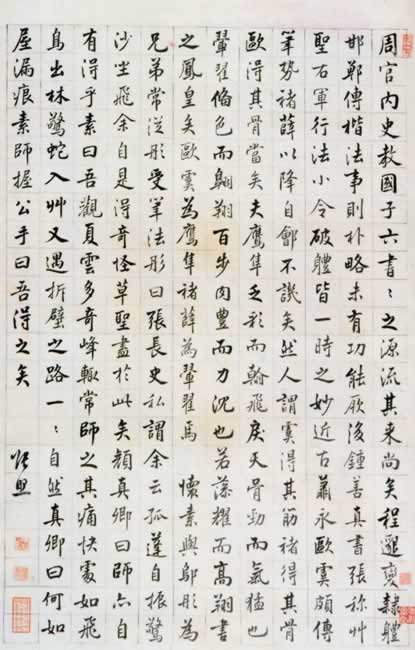 周官内史教國子六書〻之源流其来尚矣程邈變隸體
邯鄲傳楷法事則朴略未有功能厥後鍾善真書張称艸
聖右軍行法小令破體皆一時之妙近古蕭永歐虞頗傳
筆勢褚薛以降自鄶不譏矣然人謂虞得其筋褚得其骨
歐得其骨當矣夫鷹隼乏彩而翰飛戾天骨勁而氣猛也
翬翟備色而翱翔百步肉豊而力沈也若藻耀而髙翔書
之鳳皇矣歐虞為鷹隼褚薛為翬翟焉 懷素與鄔彤為
兄弟常從彤受筆法彤曰張長史私謂余云孤蓬自振驚
沙坐飛余自是得奇怪草聖盡於此矣顔真卿曰師亦自
有得乎素曰吾觀夏雲多奇峰輒常師之其痛快處如飛
鳥出林驚蛇入艸又遇折壁之路一〻自然真卿曰何如
屋漏痕素師握公手曰吾得之矣
張照